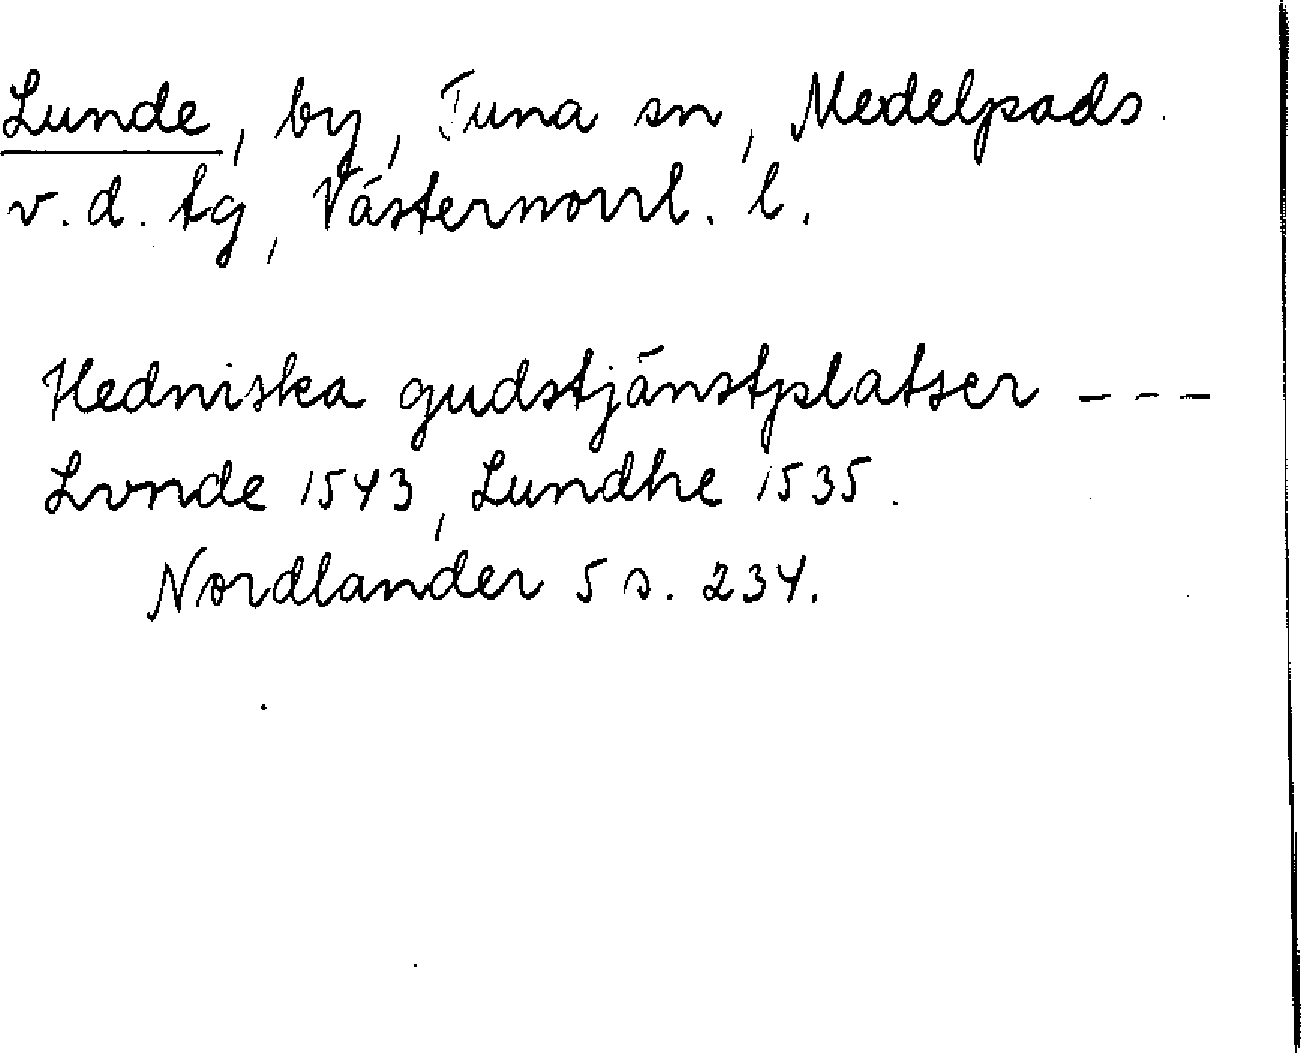 Lunde, by, Tuna sn, Medelpads
v.d. tg, Västernorrl. l.
Hedniska gudstjänstplatser ---
Lvnde 1543, Lundhe 1535.
Nordlander 5 s. 234.